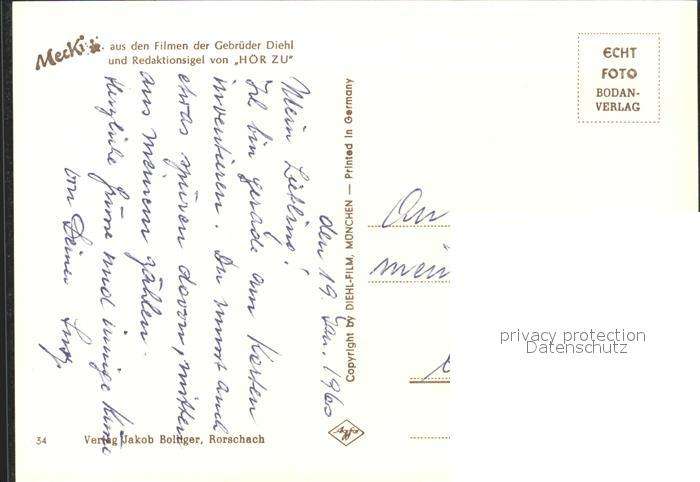 Mecki aus den Filmen der Gebrüder Diehl
und Redaktionsigel von „HÖR ZU"
ECHT
FOTO
BODAN-
VERLAG
den 19. Jan. 1960
Mein Liebling!
Ich bin gerade am Karten
inventieren. Du musst auch
etwas spüren davon, mitten
aus meinem zählen.
Herzliche Grüsse und innige Küsse
von Deiner
Copyright by DIEHL-FILM, MÜNCHEN — Printed in Germany
An
mein
privacy protection
Datenschutz
34 Verlag Jakob Bolliger, Rorschach